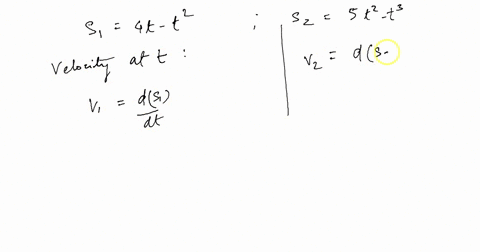 S₁ = 4t - t² ; S₂ = 5t² - t³
Velocity at t :
V₂ = d(s
V₁ = d(s₁)/dt